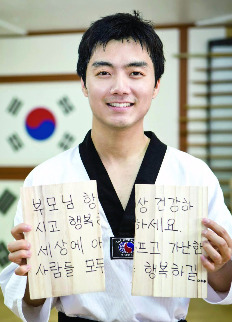 부모님 항상 건강하
시고 행복하세요.
세상에 아프고 가난한
사람들 모두 행복하길...